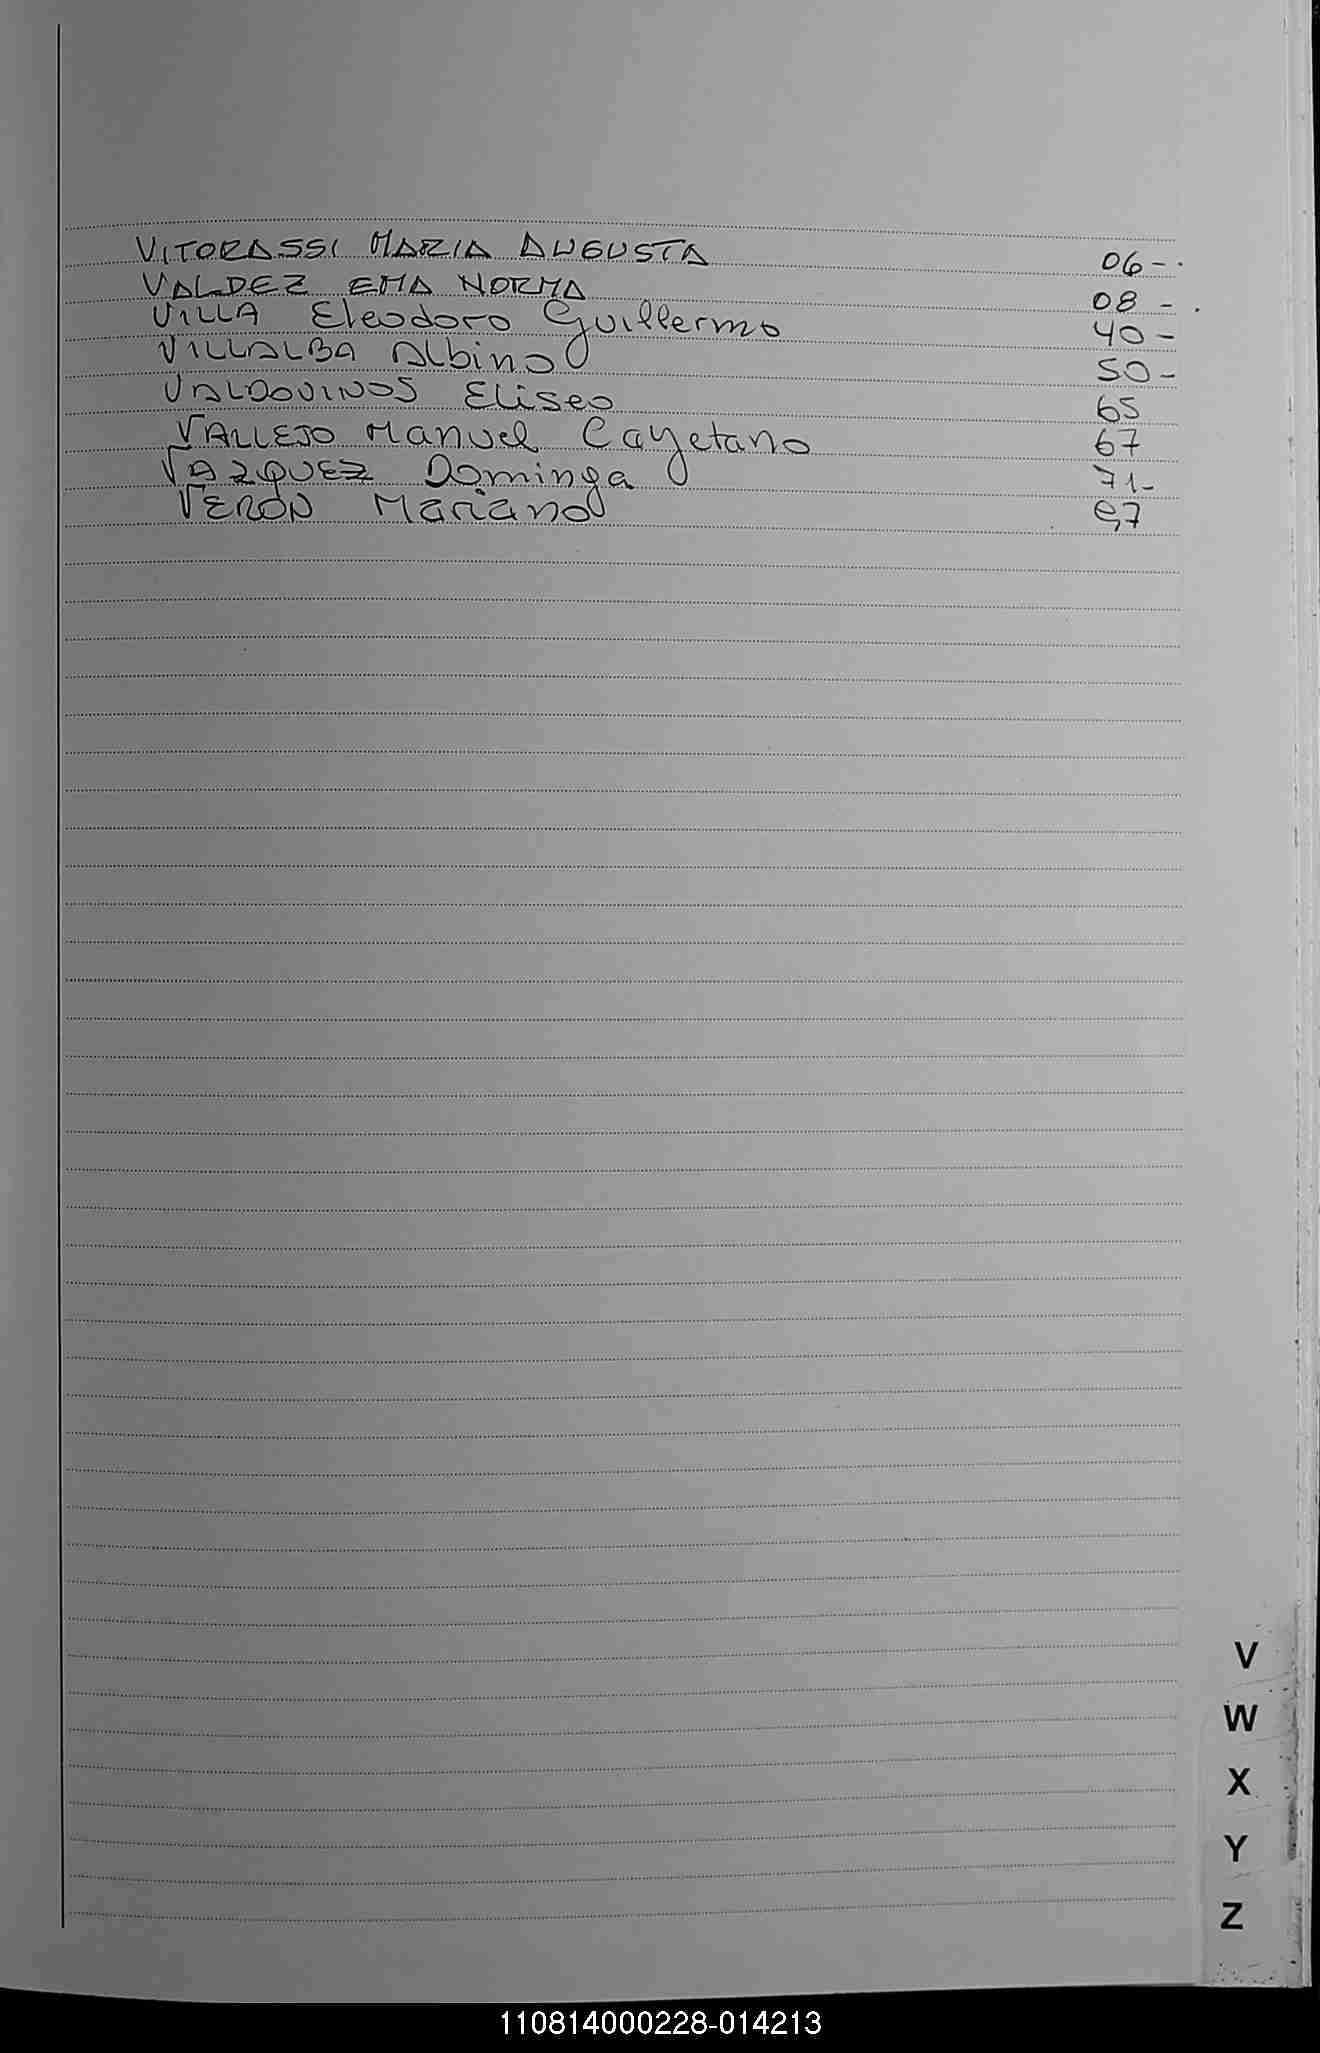 VITORASSI MARIA AUGUSTA 06-.
VALDEZ EMA NORMA 08-.
VILLA Eleodoro Guillermo 40-
VILLALBA Albino 50-
VALDOVINOS Eliseo 65
VALLEJO Manuel Cayetano 67
VAZQUEZ Dominga 71-
VERON Mariano 97
V
W
X
Y
Z
110814000228-014213